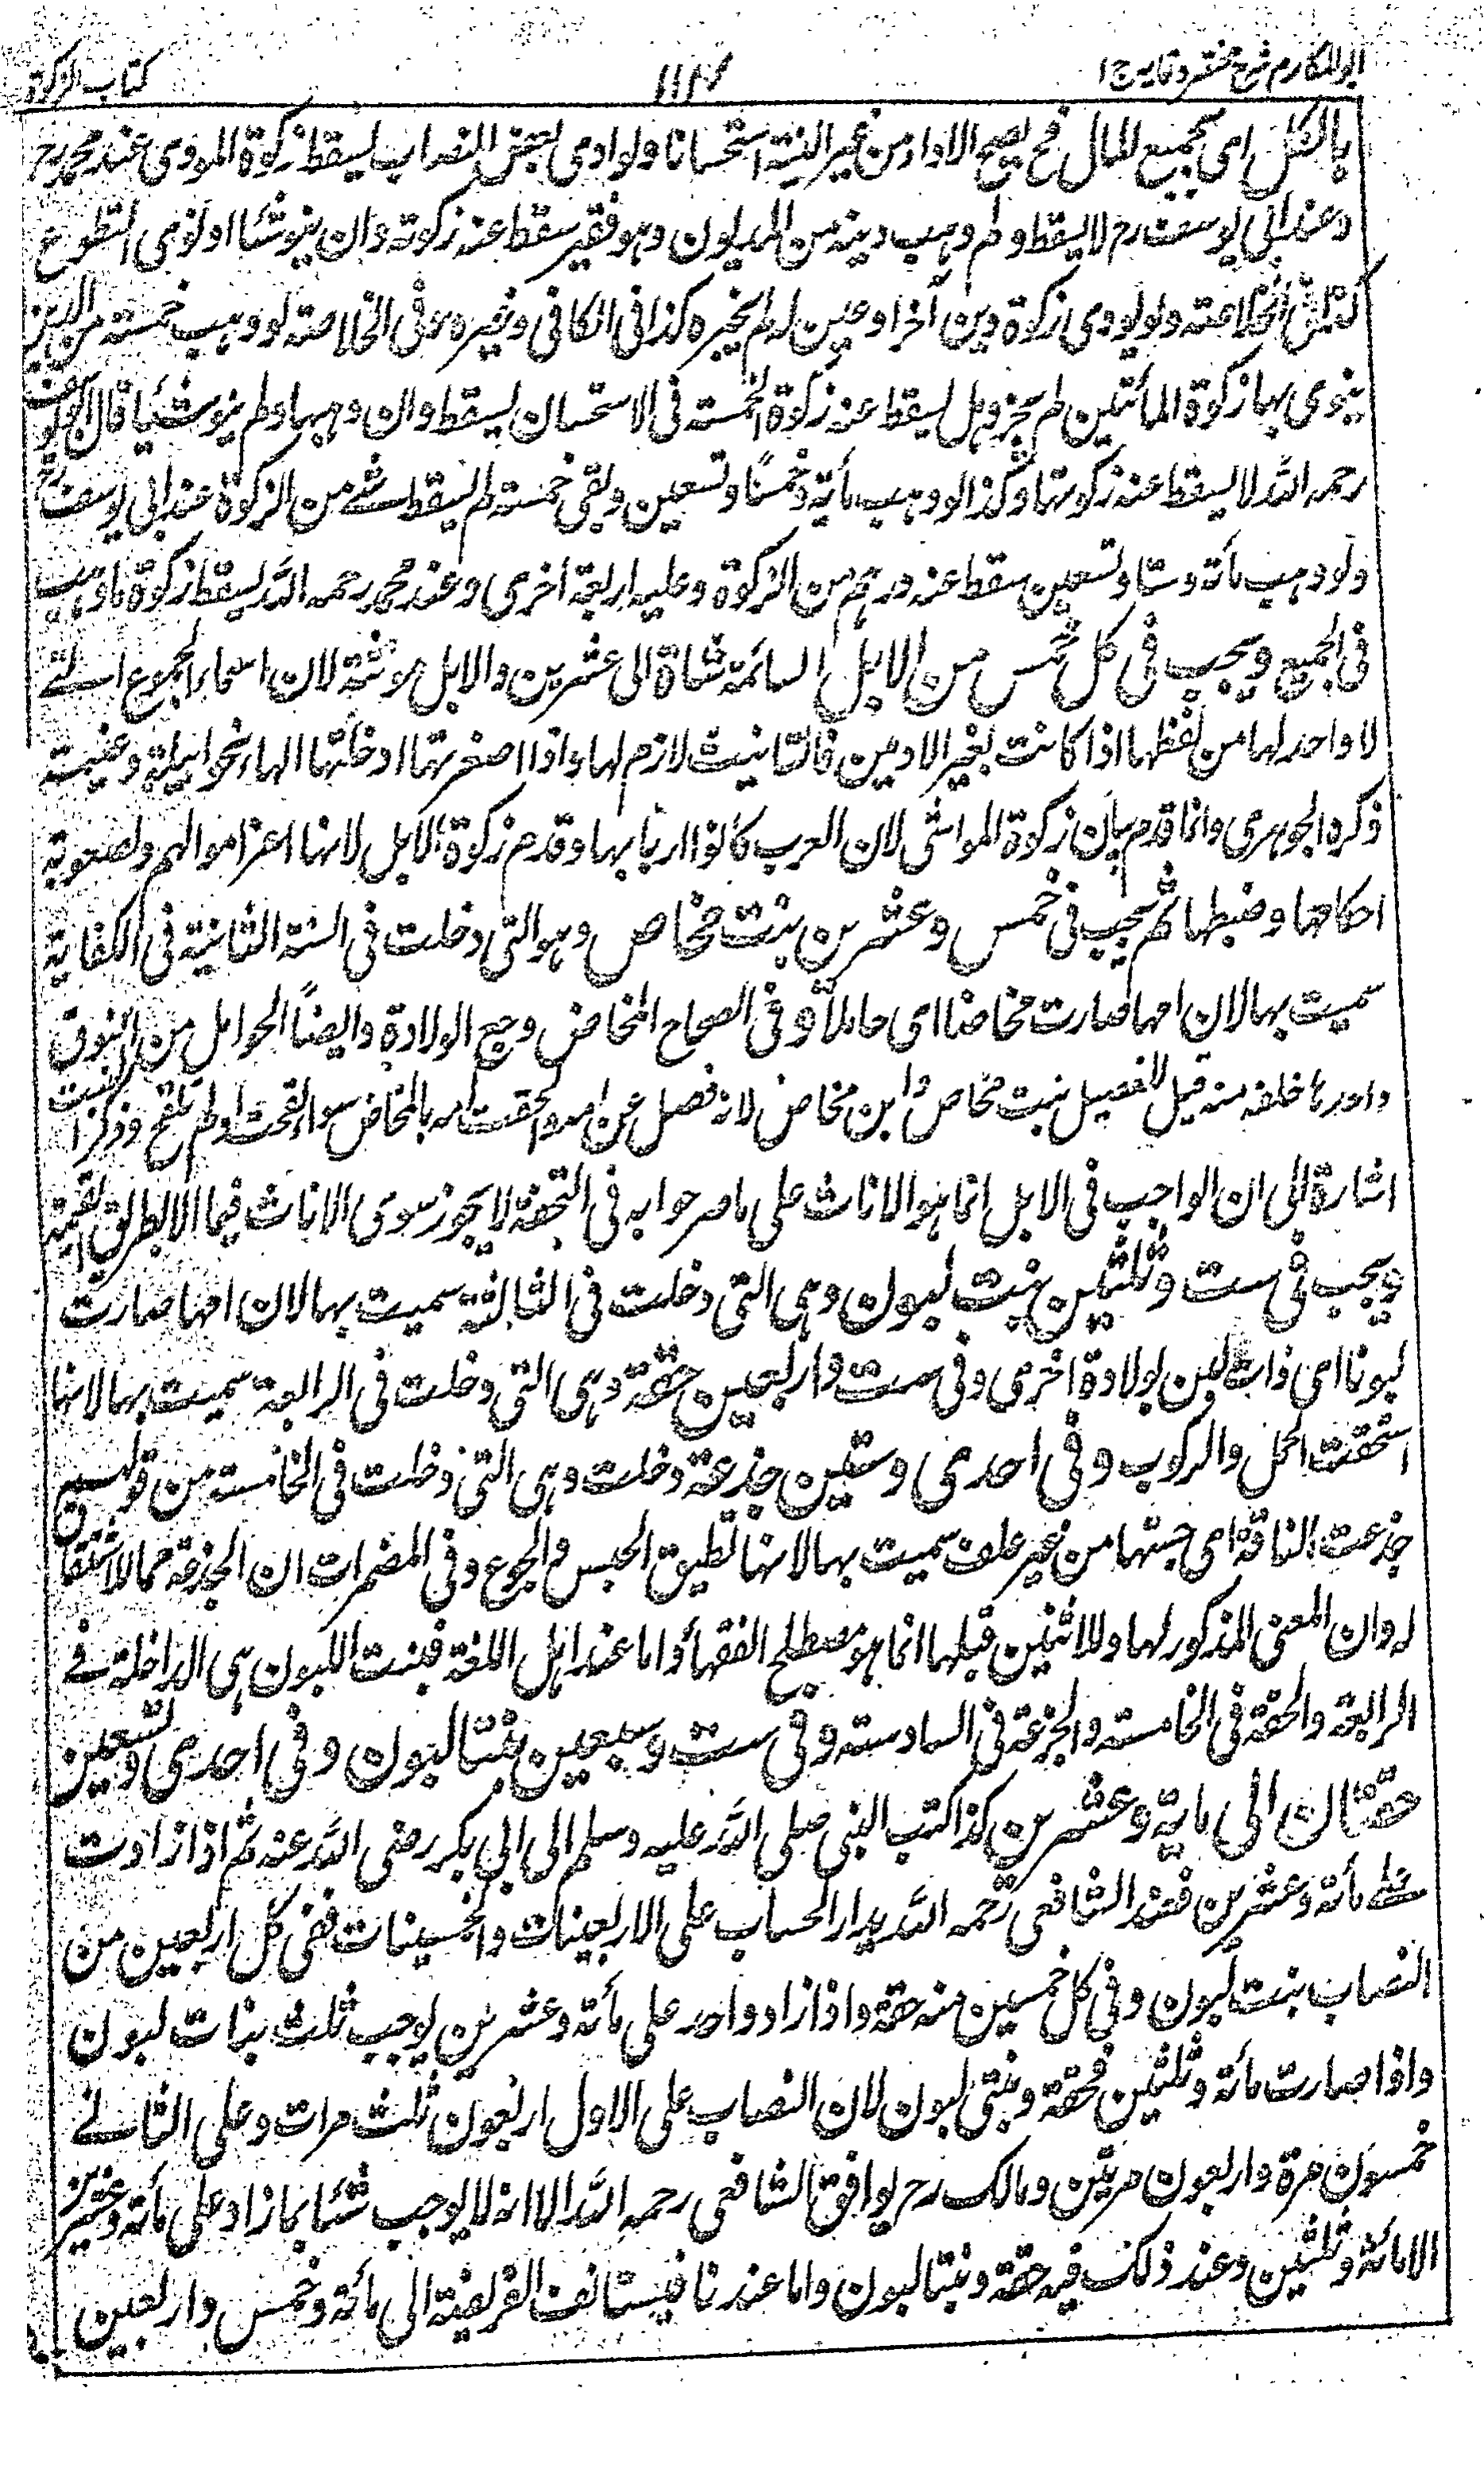 ابوالمکارم شرح مختصر وقایہ ج ۱
کتاب الزکوة
بالکل ای بجمیع المال فح یصح الاداء من غیر النیة استحسانا ولو ادی بعض النصاب لیسقط زکوة المودی عند محمد رح
وعند ابی یوسف رح لا یسقط ولو وہب دینہ من المدیون وہو فقیر سقط عنہ زکوتہ وان ینو شئا او نوی التطوع
کذا فی الخلاصة ولو یودی زکوة دین آخر او عین لہ لم یجزہ کذا فی الکافی وغیرہ وفی الخلاصة لو وہب خمستہ من الدین
ینوی بہا زکوة المأتین لم یجز وہل یسقط عنہ زکوة الخمستہ فی الاستحسان یسقط وان وہبہا ولم ینو شیئا قال ابو یوسف
رحمہ اللہ لا یسقط عنہ زکوتہا وکذا لو وہب مأیة وخمسًا وتسعین وبقی خمستہ لم یسقط شے من الزکوة عند ابی یوسف رح
ولو وہب مأتہ وستا وتسعین سقط عنہ درہم من الزکوة وعلیہ اربعة اخری وعند محمد رحمہ اللہ یسقط زکوة ما وہب
فی الجمیع ویجب فی کل خمس من الابل السائمة شاة الی عشرین والابل مونثة لان اسماء الجموع التے
لا واحد لہا من لفظہا اذا کانت لغیر الادمین فالتانیث لازم لہا واذا اصغرتہا ادخلتہا الہاء نحو ابیلة وغنیمة
ذکرہ الجوہری وانما قدم بیان زکوة المواشی لان العرب کانوا اربابہا وقدم زکوة الابل لانہا اعز اموالہم ولصعوبة
احکامہا وضبطہا ثم یجب فی خمس وعشرین بنت مخاض وہو التی دخلت فی السنة الثانیة فی الکفایة
سمیت بہا لان امہا صارت مخاضا ای حاملاً وفی الصحاح المخاض وجع الولادة وایضاً الحوامل من النوق
وادرہا خلفہ منہ قیل للفصیل بنت مخاض وابن مخاض لانہ فصل عن امہ والحقت امہ بالمخاض سواء لقحت او لم تلقح وذکر البنت
اشارة الی ان الواجب فی الابل انما ہو الاناث علی ما صرحوا بہ فی التحفة لا یجوز سوی الاناث فیہا الا بطریق القیمة
ویجب فی ست وثلثین بنت لبون وہی التی دخلت فی الثالثة سمیت بہا لان امہا صارت
لبونا ای ذات لبن بولادة اخری وفی ست واربعین حقة وہی التی دخلت فی الرابعة سمیت بہا لانہا
استحقت الحمل والرکوب وفی احدی وستین جذعة دخلت وہی التی دخلت فی الخامستہ من قولہم
جذعت الناقة ای حبستہا من غیر علف سمیت بہا لانہا تطیق الحبس والجوع وفی المضمرات ان الجذعة مما لا اشتقاق
لہ وان المعنی المذکور لہا ولا اثنین قبلہا انما ہو مصطلح الفقہاء واما عند اہل اللغة فبنت اللبون ہی الداخلة فے
الرابعة والحقة فی الخامستہ والجزعة فی السادستہ وفی ست وسبعین بنتا لبون وفی احدی وتسعین
حقتان الی مایة وعشرین کذا کتب النبی صلی اللہ علیہ وسلم الی ابی بکر رضی اللہ عنہ ثم اذا زادت
علے مأتہ وعشرین فعند الشافعی رحمہ اللہ یدار الحساب علی الاربعینات والخمسینات ففی کل اربعین من
النصاب بنت لبون وفی کل خمسین منہ حقة واذا زاد واحد علی مأتہ وعشرین یوجب ثلث بنات لبون
واذا صارت مأتہ وثلثین فحقة وبنتی لبون لان النصاب علی الاول اربعون ثلث مرات وعلی الثانے
خمسون مرة واربعون مرتین ومالک رح یوافق الشافعی رحمہ اللہ الا انہ لا یوجب شئا بما زاد علی مأتہ وعشرین
الا مأتہ وثلثین وعند ذلک فیہ حقة وبنتا لبون واما عندنا فیستانف الفریضة الی مأتہ وخمس واربعین